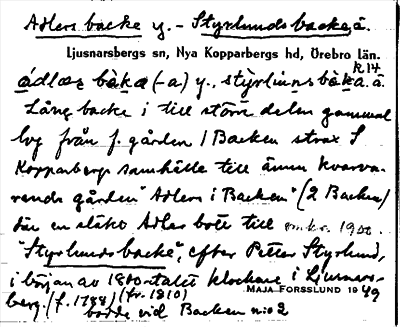 Adlers backe y. - Styrlunds backe, ä.
Ljusnarsbergs sn, Nya Kopparbergs hd, Örebro län.
R 14
ádlæs bàka (-a) y., stỳrlunns bàka. ä.
Lång backe i till större delen gammal
byg från f. gården 1 Backen strax S
Kopparbergs samhälle till ännu kvarva-
rande gården "Adlers i Backen" (2 Backen)
där en släkt Adler bott till omkr. 1900.
"Styrlunds backe", efter Petter Styrlund,
i början av 1800-talet klockare i Ljusnars-
berg. (f. 1788) (fr. 1810)
MAJA FORSSLUND 1949
bodde vid Backen n:o 2